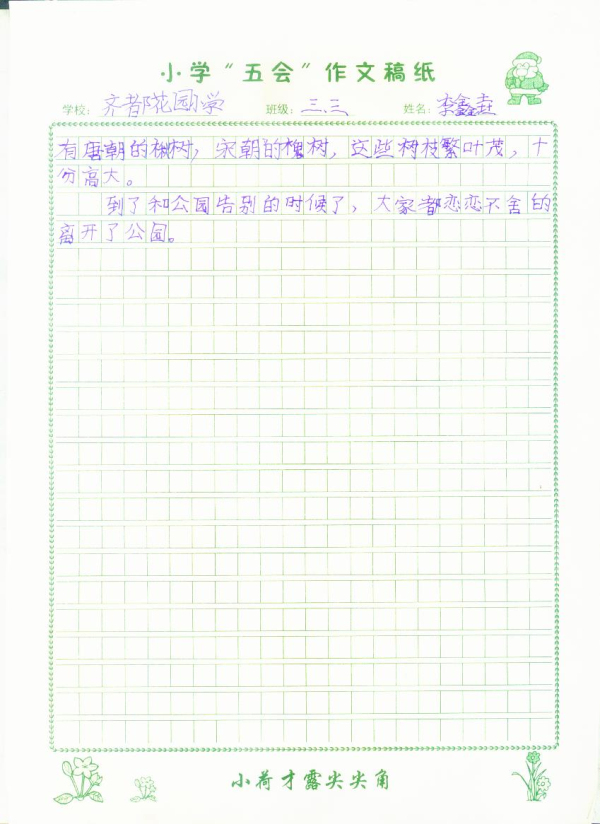 小学“五会”作文稿纸
学校：齐都花园小学 班级：三.三 姓名：李鑫垚
有唐朝的槐树，宋朝的槐树，这些树枝繁叶茂，十
分高大。
到了和公园告别的时候了，大家都恋恋不舍的
离开了公园。
小荷才露尖尖角